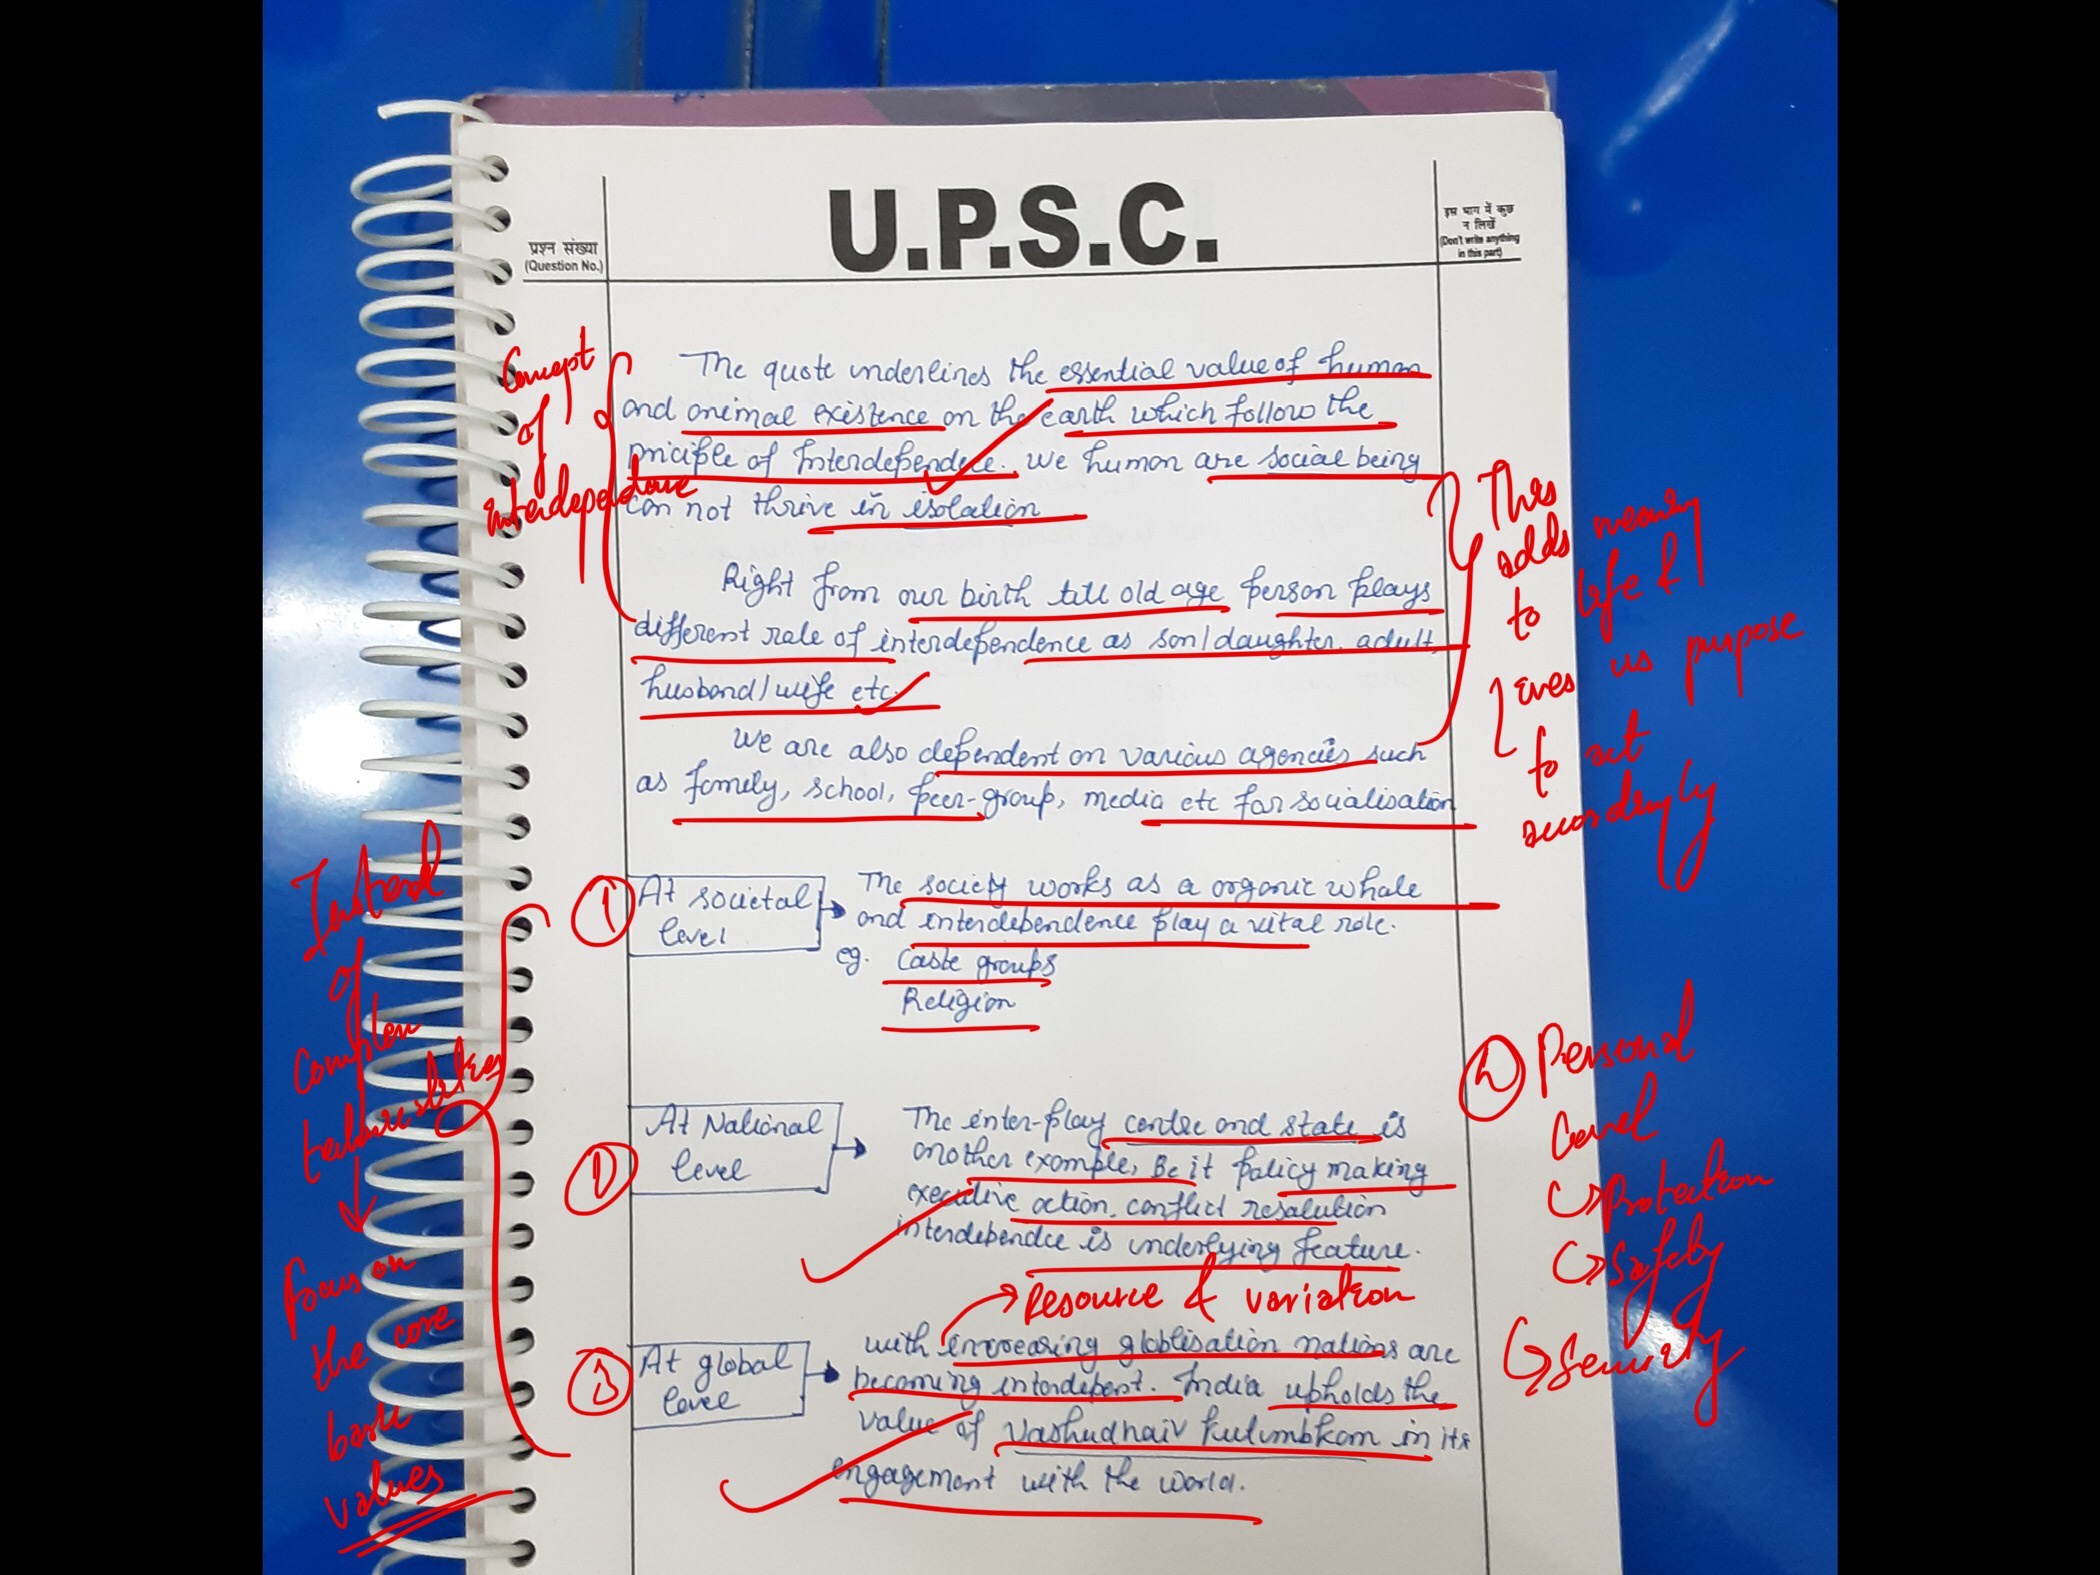 U.P.S.C.
प्रश्न संख्या
(Question No.)
इस भाग में कुछ
न लिखें
(Don't write anything
in this part)
The quote underlines the essential value of human
and animal existence on the earth which follow the
priciple of Interdependece. We human are social being
can not thrive in isolation
Concept
of
interdependence
Right from our birth till old age person plays
different role of interdependence as son/daughter, adult,
husband/wife etc.
We are also dependent on various agencies such
as family, school, peer-group, media etc for socialisation
This
adds meaning
to life &
gives us purpose
to act
accordingly
1 At societal
level
The society works as a organic whole
and interdependence play a vital role.
eg. Caste groups
Religion
2 At National
level
The inter-play centre and state is
another example, Be it policy making
executive action, conflict resolution
interdependce is underlying feature.
Resource & variation
3 At global
level
with increasing globlisation nations are
becoming interdepent. India upholds the
value of Vashudhaiv kutumbkam in its
engagement with the world.
Instead
of
complex
technicalities
focus on
the core
basic
values
Personal
level
Protection
Safety
Security